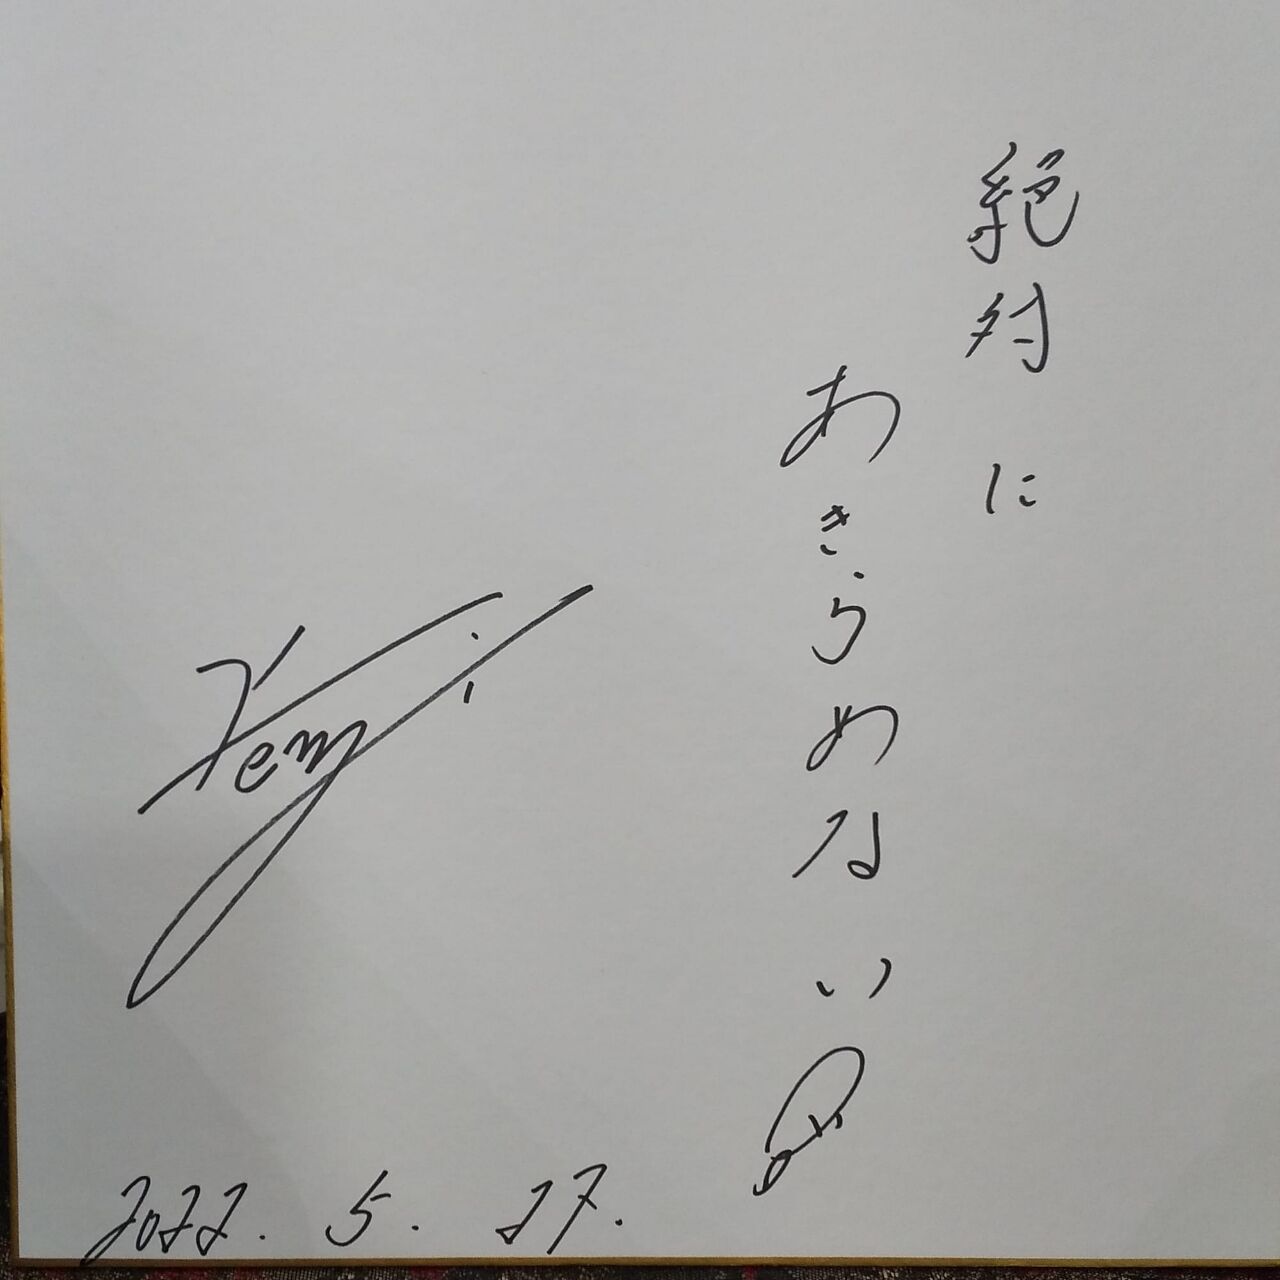 絶対に
あきらめない
Kenji
2022. 5. 27.